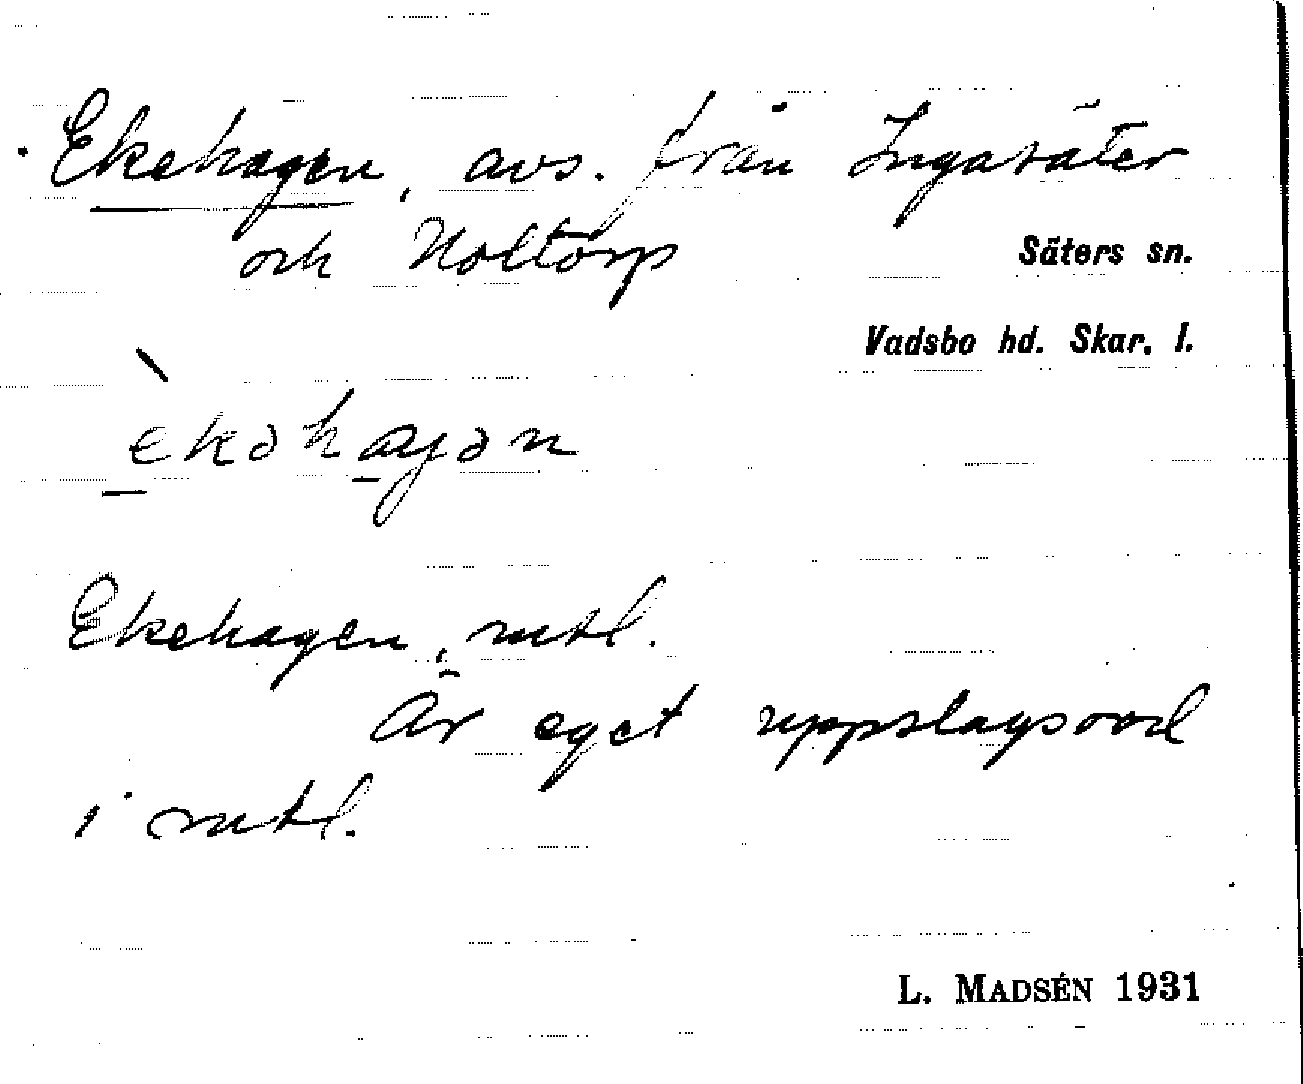 Ekehagen, avs. från Ingasäter
och Holtorp
Säters sn.
Vadsbo hd. Skar. l.
̀ekəhaɡən
Ekehagen, mtl.
Är eget uppslagsord
i mtl.
L. MADSÉN 1931